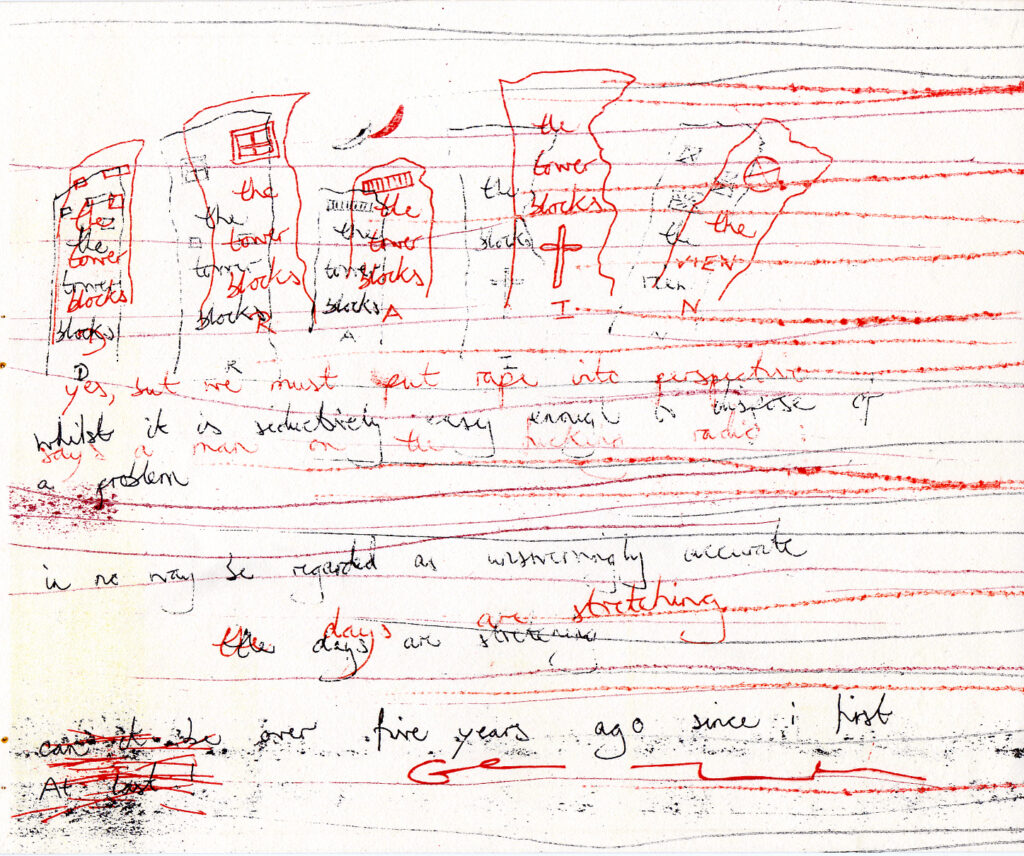 the
tower
blocks
the
tower
blocks
D
the
tower
blocks
the
tower
blocks
R
R
the
tower
blocks
the
tower
blocks
A
A
the
tower
blocks
the
blocks
I
I
the
VIEW
the
N
yes, but we must put rape into perspective
whilst it is seductively easy enough to dispose of
says a man on the fucking radio :
a problem
in no way be regarded as unswervingly accurate
the days are stretching
the days are stretching
can it be over five years ago since i first
At last !